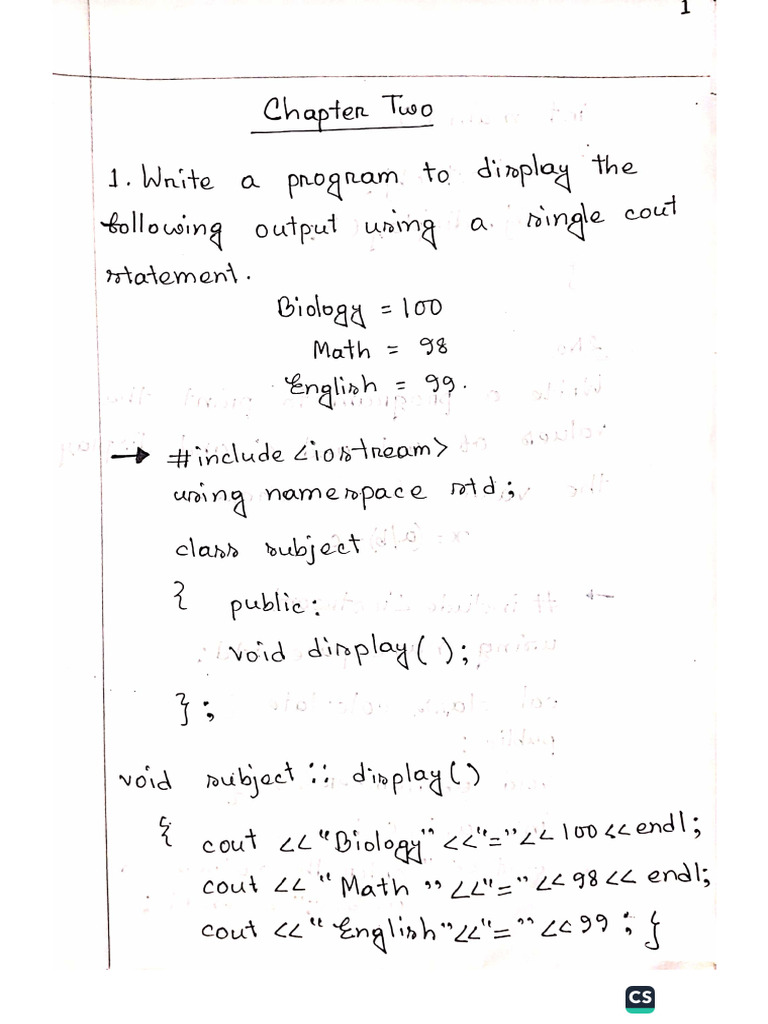 1
Chapter Two
1. Write a program to display the
following output using a single cout
statement.
Biology = 100
Math = 98
English = 99.
→ #include <iostream>
using namespace std;
class subject
{ public:
void display( );
};
void subject :: display()
{ cout << "Biology" <<"="<< 100 << endl;
cout << "Math" <<"="<< 98 << endl;
cout << "English"<<"="<< 99 ; }
CS